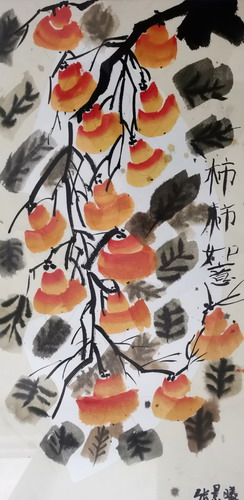 柿柿如意
张景